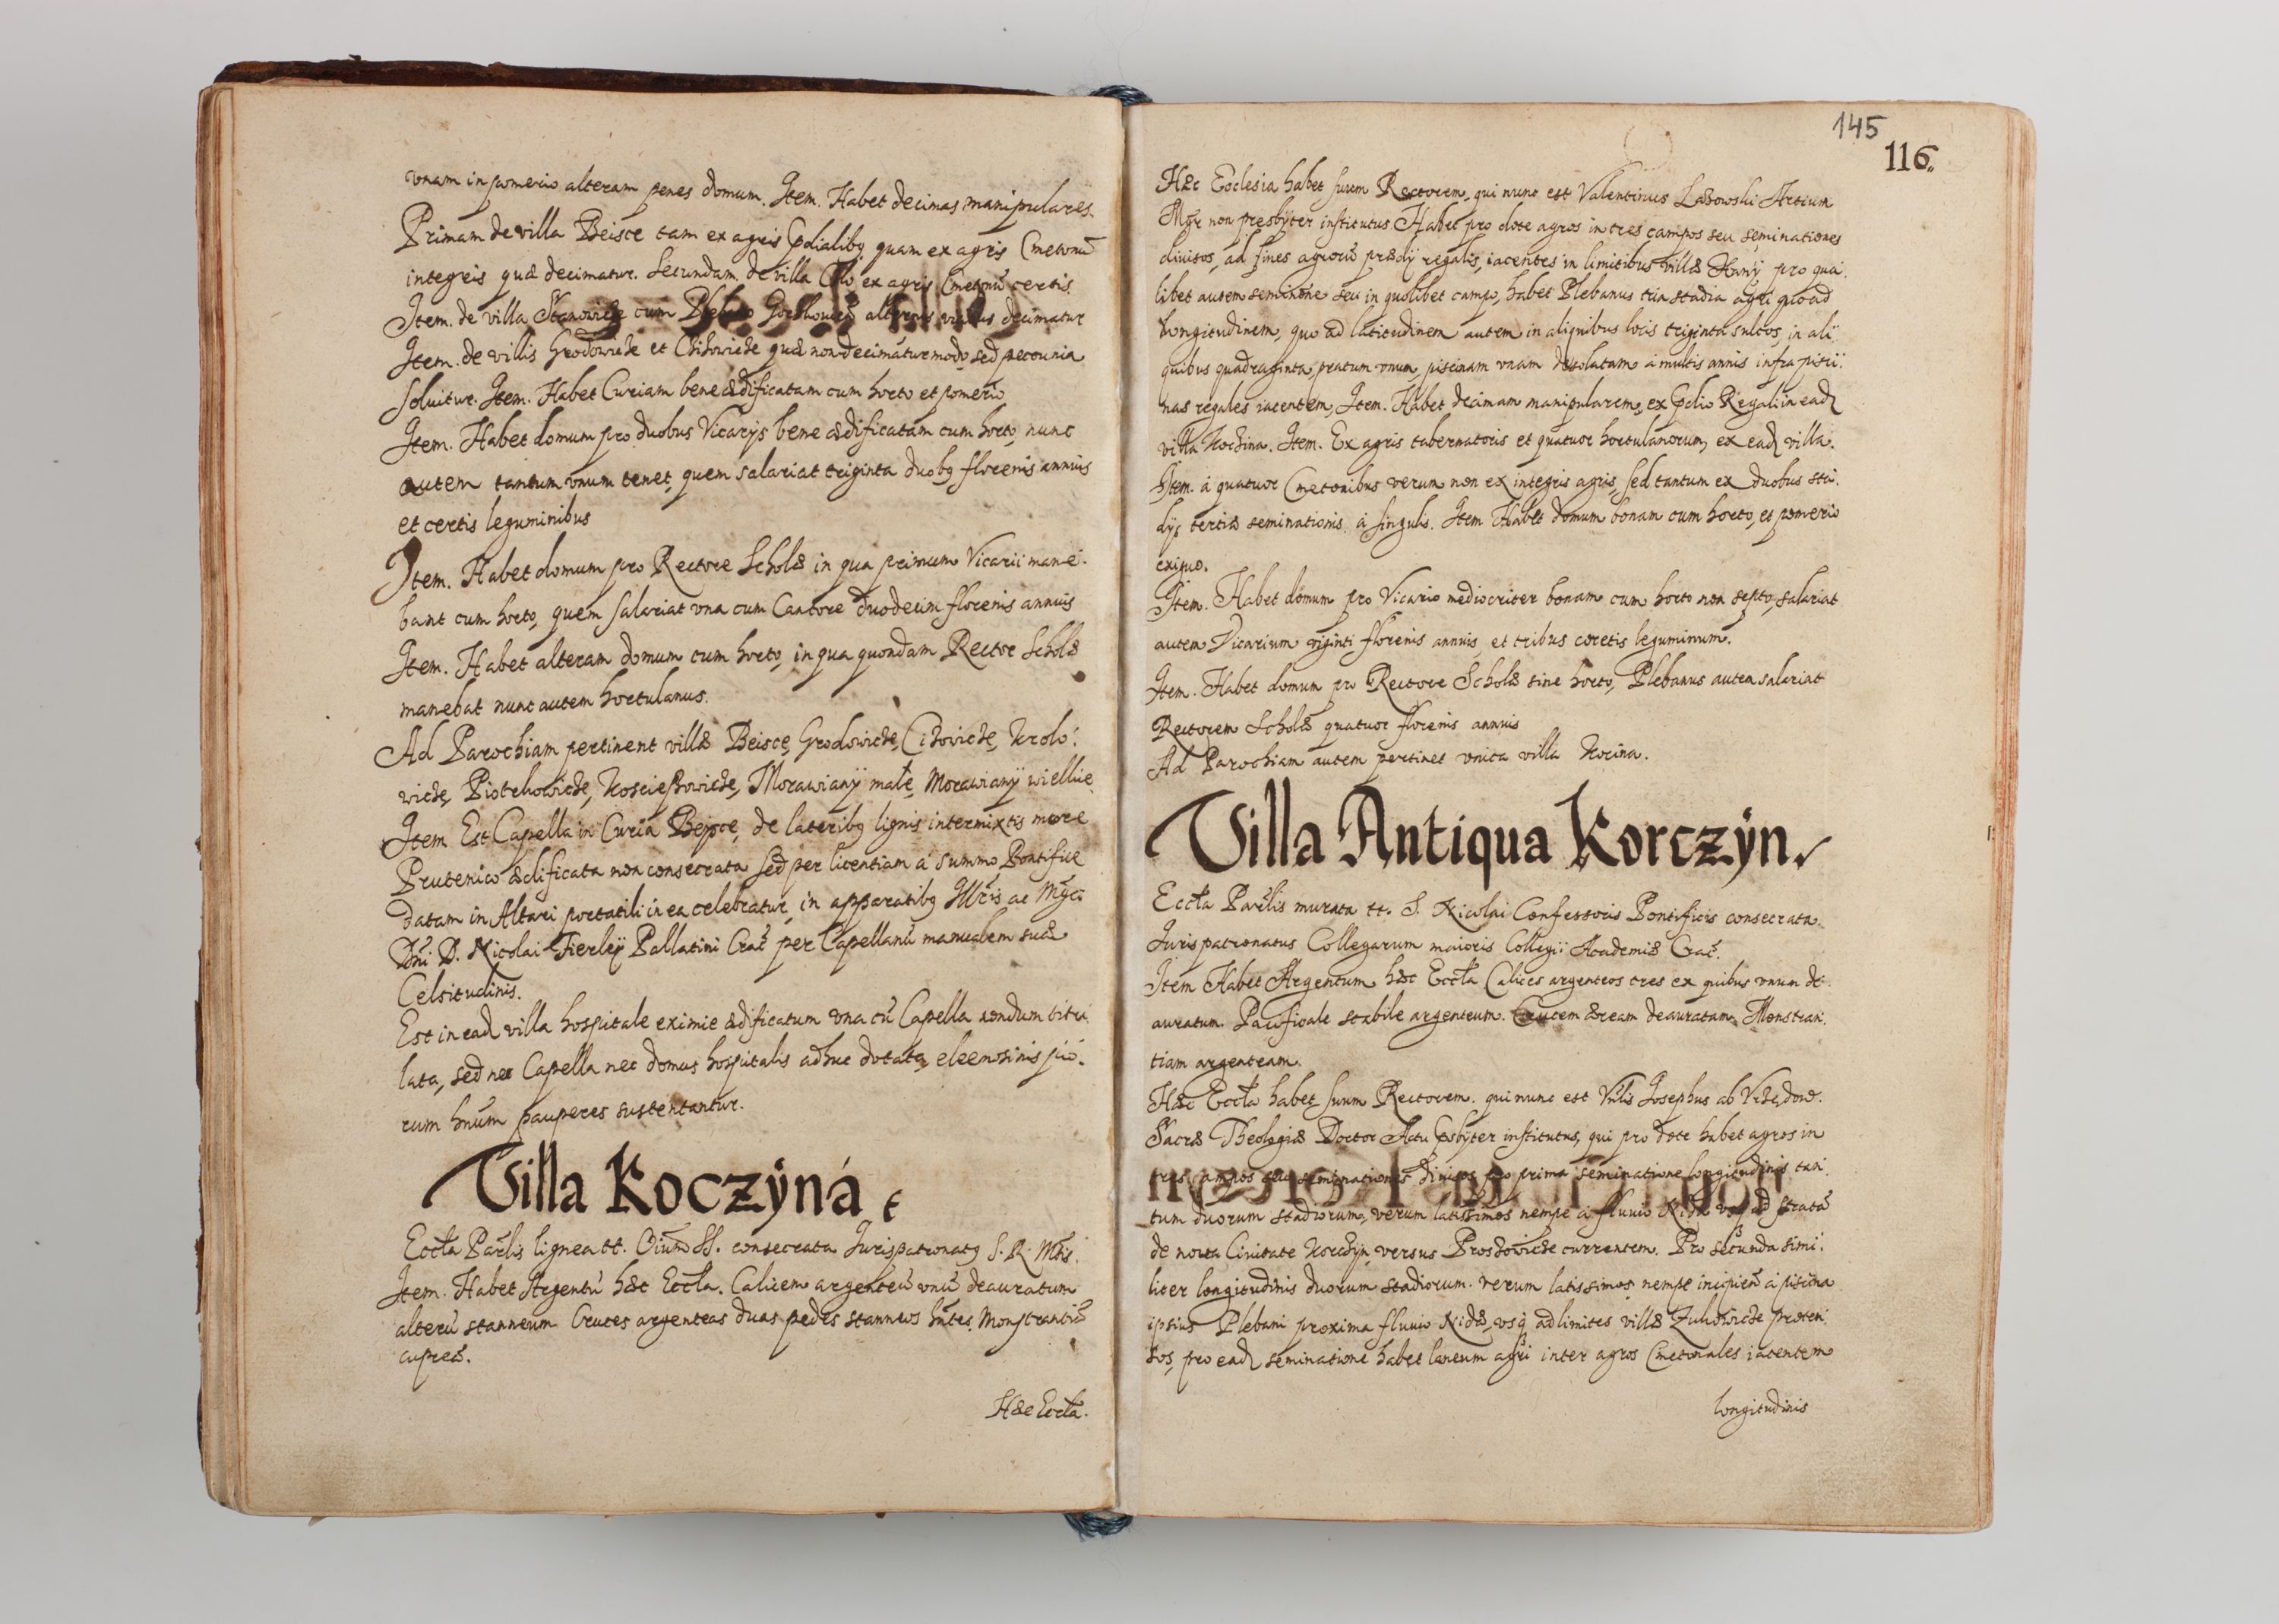 vnam in pomerio alteram penes domum. Item. Habet decimas manipulares.
Primam de villa Beisce tam ex agris Prædialibq quam ex agris Cmetonū
integris quæ decimatur. Secundam de villa ex agris Cmetonū certis.
Item. de villa cum Plebano alternis vicibus decimatur
Item. de villis Grodowicze et Czizowicze quæ non decimatur modo, sed pecunia
soluitur. Item. Habet Curiam bene ædificatam cum horto et pomerio.
Item. Habet domum pro duobus Vicarijs bene ædificatam cum horto, nunc
autem tantum vnum tenet, quem salariat triginta duobq florenis annuis
et certis leguminibus
Item. Habet domum pro Rectore Scholæ in qua primum Vicarii mane-
bant cum horto, quem salariat vna cum Cantore duodecim florenis annuis
Item. Habet alteram domum cum horto, in qua quondam Rector Scholæ
manebat nunc autem hortulanus.
Ad Parochiam pertinent villæ Beisce, Grodowicze, Cizovicze, Krolo-
wicze, Piotrkowicze, Koscieszowicze, Morawianÿ małe, Morawianÿ wielkie
Item. Est Capella in Curia Bejsce, de lateribq lignis intermixtis more
Prutenico ædificata non consecrata sed per licentiam á summo Pontifice
datam in Altari portatili in ea celebratur, in apparatibq Illris ac Mgci
Dni D. Nicolai Fierleÿ Pallatini Crac̄ per Capellanū manualem suæ
Celsitudinis.
Est in ead villa hospitale eximie ædificatum vna cū Capella nondum titu
lata, sed nec Capella nec domus hospitalis adhuc dotata, eleemosinis pio-
rum hnum pauperes sustentantur.
Villa Koczÿná
Eccła Parlis lignea tt. Oium SS. consecrata Jurispatronatq S. R. Mtis.
Item. Habet Argentū hæc Eccła. Calicem argenteū vnū deauratum
alterū stanneum Cruces argenteas duas pedes stanneos hn̄tes. Monstrantiā
cupreā.
Hæc Eccła.
145
116.
Hæc Ecclesia habet suum Rectorem, qui nunc est Valentinus Artium
Mgr non presbÿter institutus. Habet pro dote agros in tres campos seu seminationes
diuisos, ad fines agrorū prædÿ regalis, iacentes in limitibus villæ pro qua-
libet autem seminōne seu in quolibet campo, habet Plebanus tria stadia agri quo ad
longitudinem, quo ad latitudinem autem in aliquibus locis triginta sulcos, in ali-
quibus quadraginta, pratum vnum, piscinam vnam desolatam á multis annis infra pisci-
nas regales iacentem, Item. Habet decimam manipularem, ex Prædio Regali in ead
villa Koczina. Item. Ex agris tabernatoris et quatuor hortulanorum, ex ead villa.
Item. á quatuor Cmetonibus verum non ex integris agris, sed tantum ex duobus sta-
dijs tertiæ seminationis á singulis. Item Habet domum bonam cum horto, et pomerio
exiguo.
Item. Habet domum pro Vicario mediocriter bonam cum horto non septo, salariat
autem Vicarium viginti florenis annuis, et tribus coretis leguminum.
Item. Habet domum pro Rectore Scholæ sine horto, Plebanus autem salariat
Rectorem Scholæ quatuor florenis annuis
Ad Parochiam autem pertinet vnica villa Kocina.
Villa Antiqua Korczÿn.
Eccła Parlis murata tt. S. Nicolai Confessoris Pontificis consecrata.
Jurispatronatus Collegarum maioris Collegii Academiæ Crac̄.
Item Habet Argentum hæc Eccła Calices argenteos tres ex quibus vnum de-
auratum. Pacificale stabile argenteum. Crucem æream deauratam. Monstran-
tiam argenteam.
Hæc Eccła habet suum Rectorem. qui nunc est Josephus ab
Sacræ Theologiæ Doctor Actu Prsbÿter institutus, qui pro dote habet agros in
tres campos seu seminationes diuisos pro prima seminatione longitudinis tan-
tum duorum stadiorum, verum latissimos nempe á fluuio Nida vsq ad stratā
de noua Ciuitate Korczÿn, versus Proszowicze currentem. Pro secunda simi-
liter longitudinis duorum stadiorum. verum latissimos nempe incipien̄ á piscina
ipsius Plebani proxima fluuio Nidæ, vsq ad limites villæ Zukowicze proten-
sos, pro ead seminatione habet laneum agri inter agros Cmetonales iacentem
longitudinis